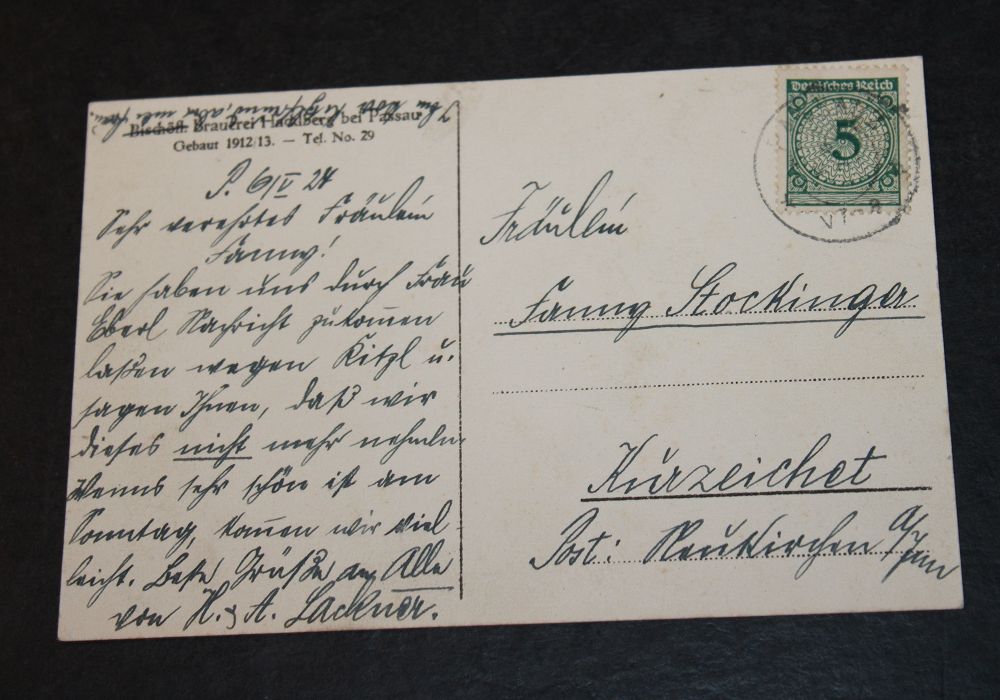 Bischöfl. Brauerei Hacklberg bei Passau
Gebaut 1912/13. — Tel. No. 29
P. 6/V 24
Sehr verehrtes Fräulein
Fanny!
Sie haben uns durch Frau
Eberl Nachricht zukom̅en
laßen wegen Kitzl u.
sagen Ihnen, daß wir
dieses nicht mehr nehmen.
Wenns sehr schön ist am
Sonntag, kom̅en wir viel-
leicht. Beste Grüße an Alle
von H. & A. Lackner.
Deutsches Reich
5
Fräulein
Fanny Stockinger
Kurzeichet
Post: Neukirchen a/Inn